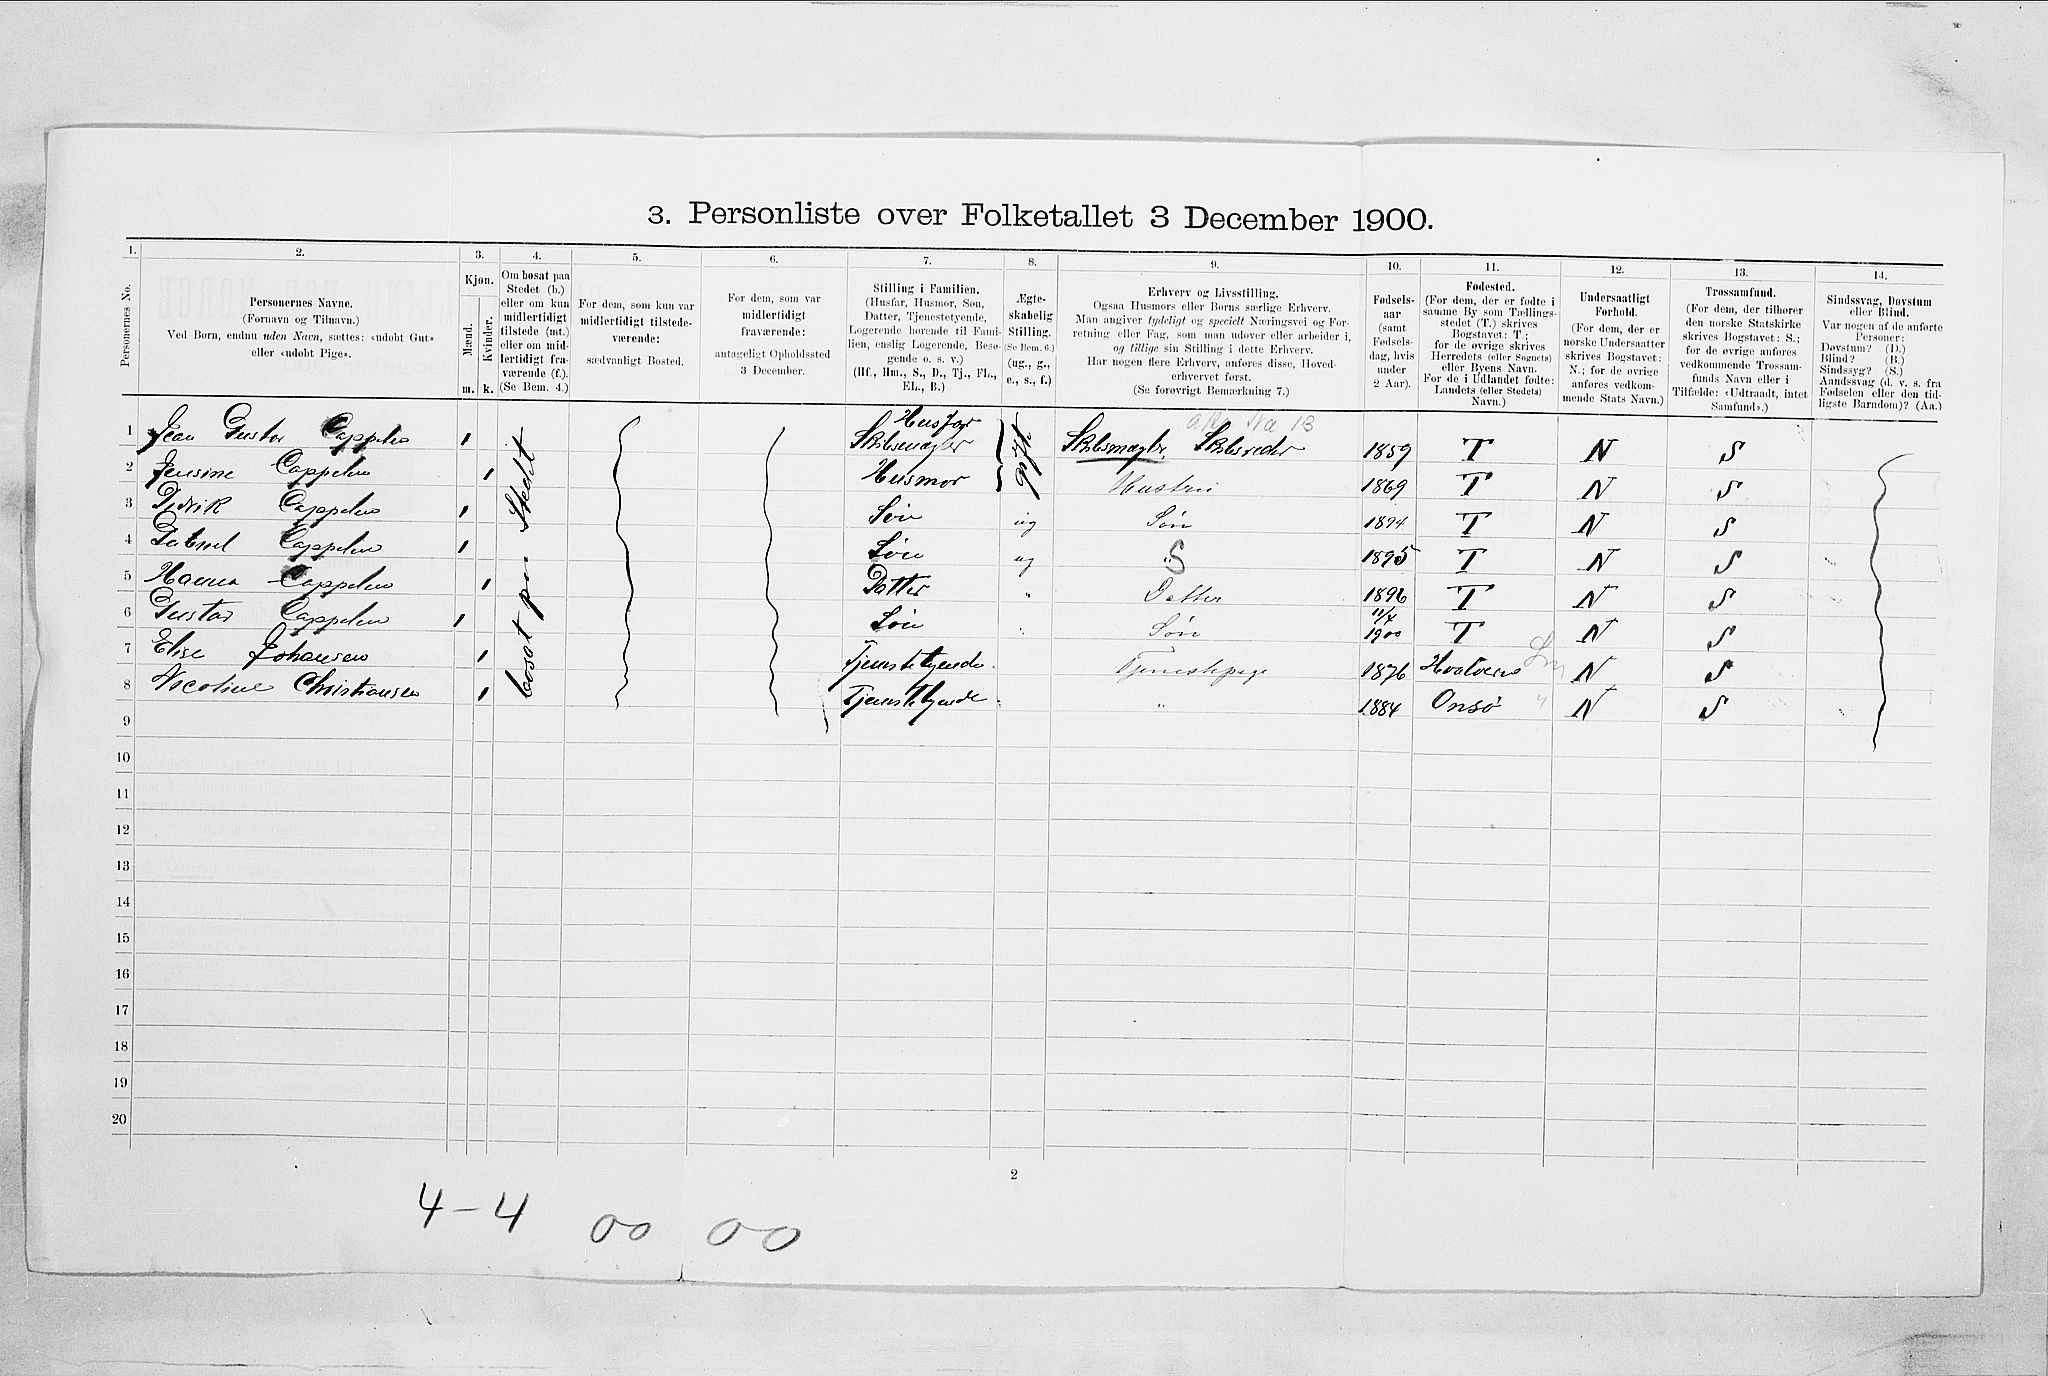 3. Personliste over Folketallet 3 December 1900.
1. 2. 3. 4. 5. 6. 7. 8. 9. 10. 11. 12. 13. 14.
Personernes No.
Personernes Navne.
(Fornavn og Tilnavn.)
Ved Børn, endnu uden Navn, sættes: «udøbt Gut»
eller «udøbt Pige».
Kjøn.
Mænd.
Kvinder.
m. k.
Om bosat paa
Stedet (b.)
eller om kun
midlertidigt
tilstede (mt.)
eller om mid-
lertidigt fra-
værende (f.).
(Se Bem. 4.)
For dem, som kun var
midlertidigt tilstede-
værende:
sædvanligt Bosted.
For dem, som var
midlertidigt
fraværende:
antageligt Opholdssted
3 December.
Stilling i Familien.
(Husfar, Husmor, Søn,
Datter, Tjenestetyende,
Logerende hørende til Fami-
lien, enslig Logerende, Besø-
gende o. s. v.)
(Hf., Hm., S., D., Tj., FL.,
EL., B.)
Ægte-
skabelig
Stilling.
(Se Bem. 6.)
(ug., g.,
e., s., f.)
Erhverv og Livsstilling.
Ogsaa Husmors eller Børns særlige Erhverv.
Man angiver tydeligt og specielt Næringsvei og For-
retning eller Fag, som man udøver eller arbeider i,
og tillige sin Stilling i dette Erhverv.
Har nogen flere Erhverv, anføres disse, Hoved-
erhvervet først.
(Se forøvrigt Bemærkning 7.)
Fødsels-
aar
(samt
Fødsels-
dag, hvis
under
2 Aar).
Fødested.
(For dem, der er fødte i
samme By som Tællings-
stedet (T.) skrives
Bogstavet: T.;
for de øvrige skrives
Herredets (eller Sognets)
eller Byens Navn.
For de i Udlandet fødte:
Landets (eller Stedets)
Navn.)
Undersaatligt
Forhold.
(For dem, der er
norske Undersaatter
skrives Bogstavet:
N.; for de øvrige
anføres vedkom-
mende Stats Navn.)
Trossamfund.
(For dem, der tilhører
den norske Statskirke
skrives Bogstavet: S.;
for de øvrige anføres
vedkommende Trossam-
funds Navn eller i
Tilfælde: «Udtraadt, intet
Samfund».)
Sindssvag, Døvstum
eller Blind.
Var nogen af de anførte
Personer:
Døvstum? (D.)
Blind? (B.)
Sindssyg? (S.)
Aandssvag (d. v. s. fra
Fødselen eller den tid-
ligste Barndom)? (Aa.)
bosat paa Stedet
gift
1 Jean Gustav Cappelen 1 Husfar Skibsmægler Skibsmægler, Skibsreder 1859 T N S
2 Jensine Cappelen 1 Husmor Hustru 1869 T N S
3 Didrik Cappelen 1 Søn ug Søn 1894 T N S
4 Gabriel Cappelen 1 Søn ug S 1895 T N S
5 Hanna Cappelen 1 Datter " Datter 1896 T N S
6 Gustav Cappelen 1 Søn " Søn 11/4 1900 T N S
7 Elise Johansen 1 Tjenestetyende Tjenestepige 1876 Hvaløerne N S
8 Nicoline Christiansen 1 Tjenestetyende " 1884 Onsø N S
9
10
11
12
13
14
15
16
17
18
19
20
2
4-4 00 00